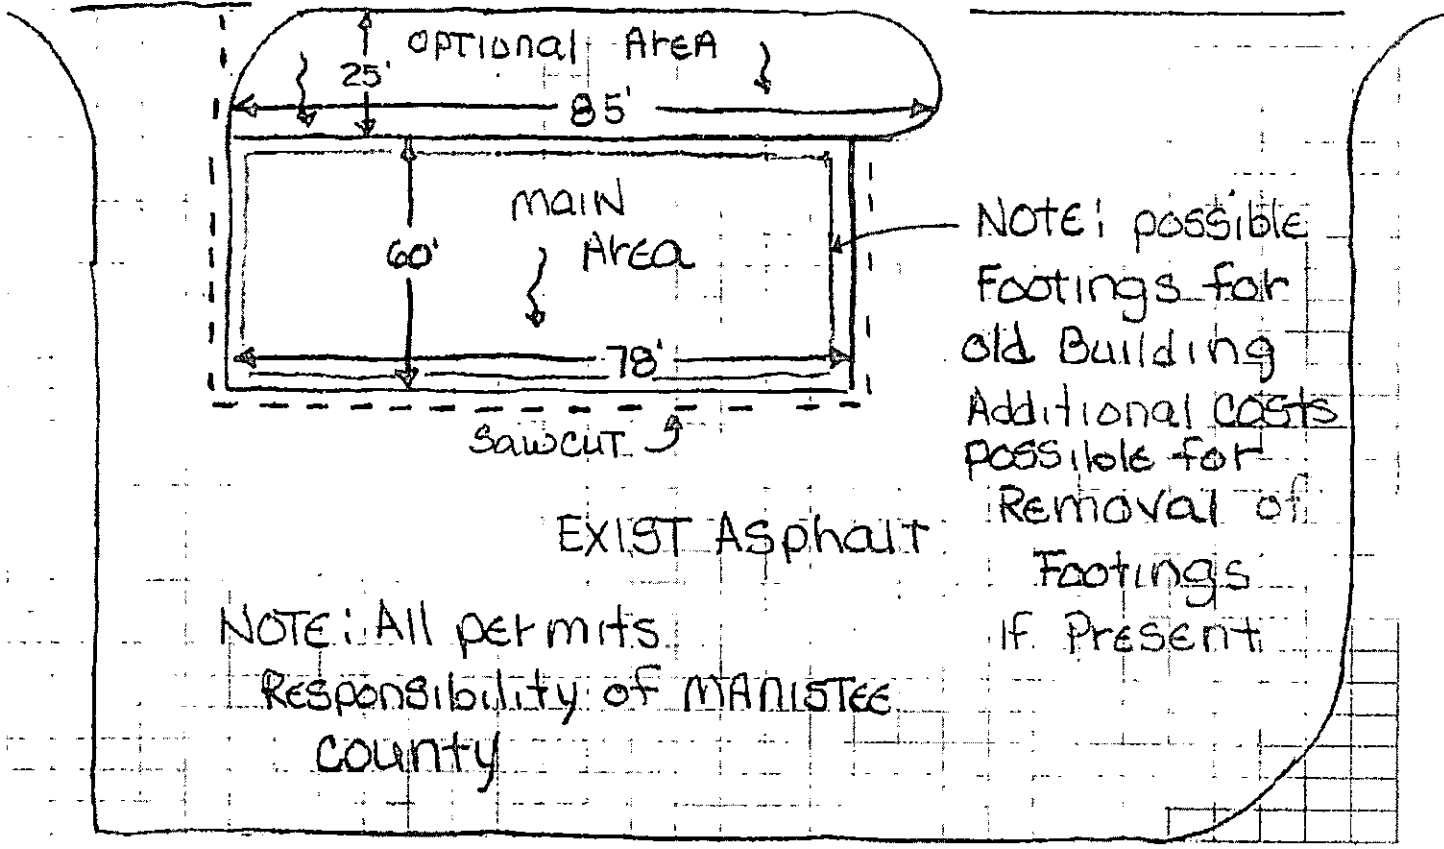 OPTIONAL AREA
25'
85'
MAIN
AREA
60'
78'
SAWCUT
NOTE: possible
Footings for
old Building
Additional costs
possible for
Removal of
Footings
if Present
EXIST Asphalt
NOTE: All permits
Responsibility of MANISTEE
county